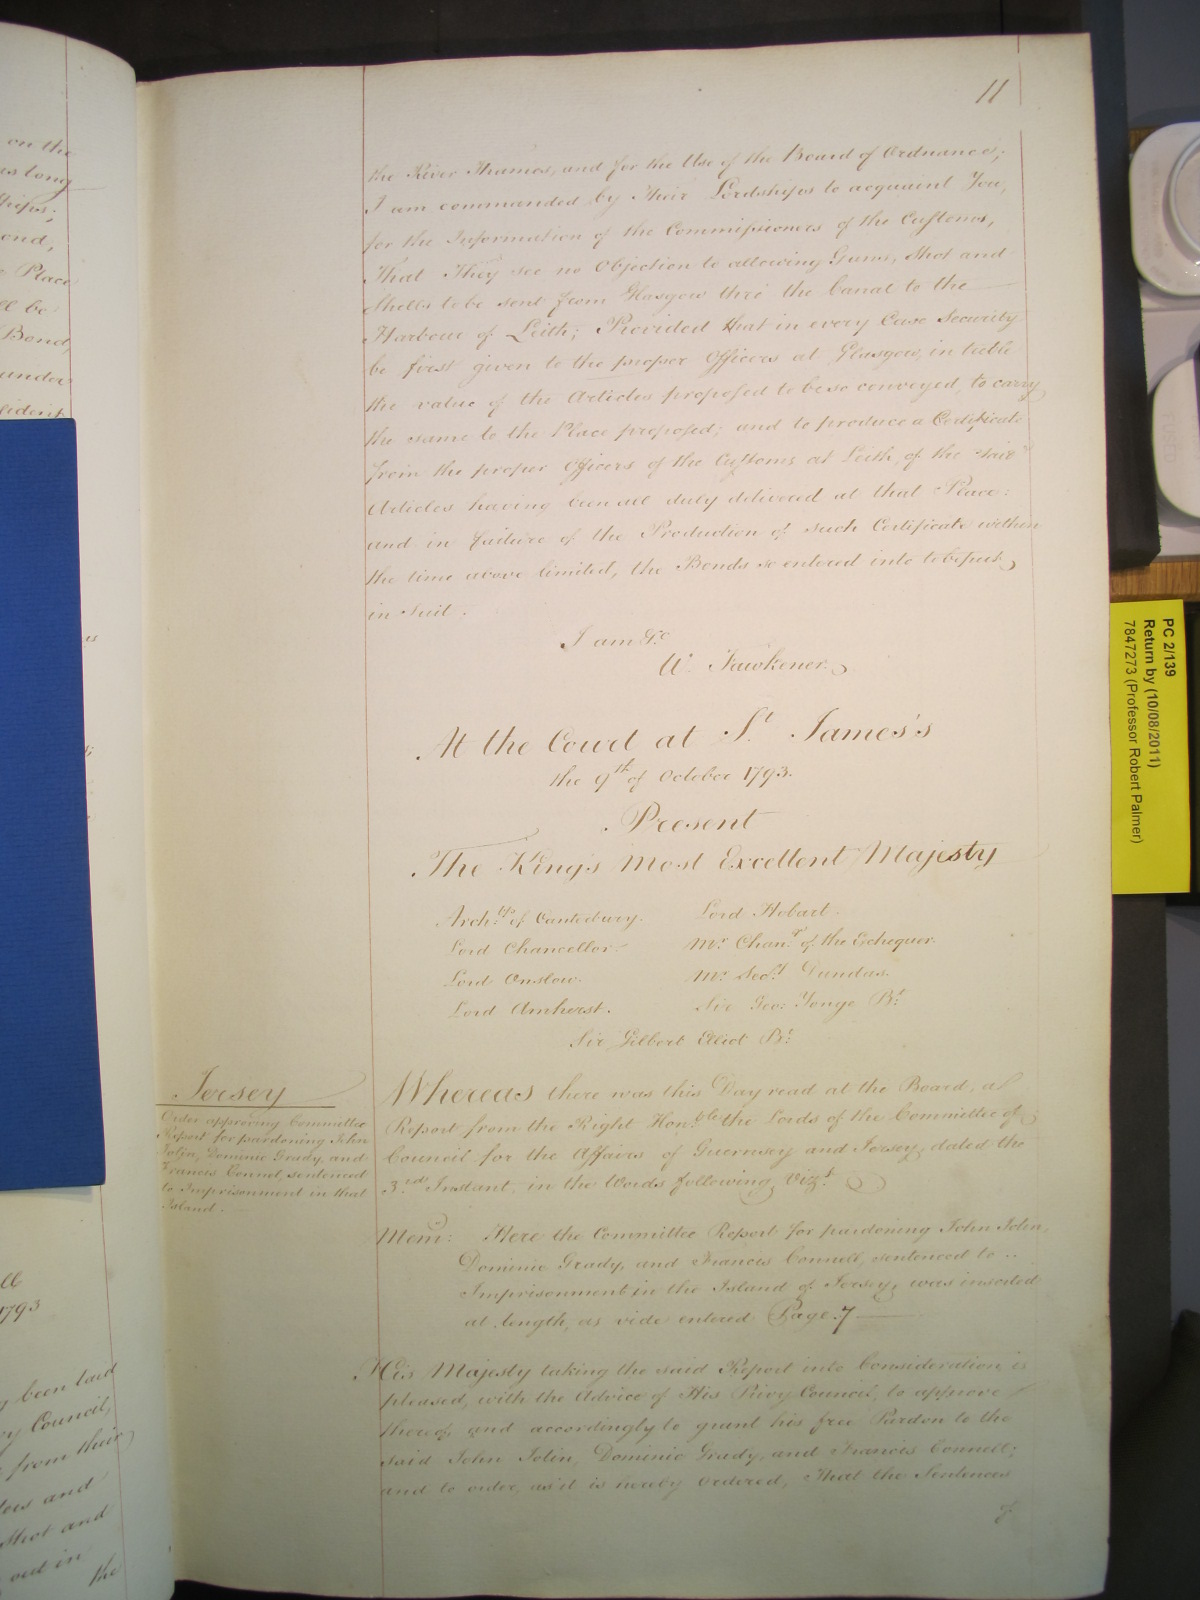 11
the River Thames, and for the Use of the Board of Ordnance;
I am commanded by Their Lordships to acquaint You,
for the Information of the Commissioners of the Customs,
That They see no Objection to allowing Guns, Shot and
Shells to be sent from Glasgow thro' the Canal to the
Harbour of Leith; Provided that in every Case Security
be first given to the proper Officers at Glasgow, in treble
the value of the Articles proposed to be so conveyed, to carry
the same to the Place proposed; and to produce a Certificate
from the proper Officers of the Customs at Leith, of the said
Articles having been all duly delivered at that Place:
and in failure of the Production of such Certificate within
the time above limited, the Bonds so entered into to be put
in Suit.
I am &c
W. Fawkener.
At the Court at St. James's
the 9th of October 1793.
Present
The King's Most Excellent Majesty
Archbp. of Canterbury. Lord Hobart.
Lord Chancellor. Mr. Chanr. of the Exchequer.
Lord Onslow. Mr. Secry. Dundas.
Lord Amherst. Sir Geo: Yonge Bt.
Sir Gilbert Elliot Bt.
Jersey
Order approving Committee
Report for pardoning John
Jolin, Dominic Grady, and
Francis Connel, sentenced
to Imprisonment in that
Island.
Whereas there was this Day read at the Board, a
Report from the Right Honble. the Lords of the Committee of
Council for the Affairs of Guernsey and Jersey, dated the
3rd. Instant, in the Words following Vizt.
Mem: Here the Committee Report for pardoning John Jolin,
Dominic Grady, and Francis Connell, sentenced to ..
Imprisonment in the Island of Jersey, was inserted
at length, as vide entered Page 7
His Majesty taking the said Report into Consideration is
pleased, with the Advice of His Privy Council, to approve
thereof, and accordingly to grant his free Pardon to the
said John Jolin, Dominic Grady, and Francis Connell;
and to order, as it is hereby Ordered, That the Sentences
of
on the
as long
Ships;
Bond,
Place
ll be
Bond,
under
1793
been laid
Council,
from their
and
Shot and
out in
the
PC 2/139
Return by (10/08/2011)
7847273 (Professor Robert Palmer)